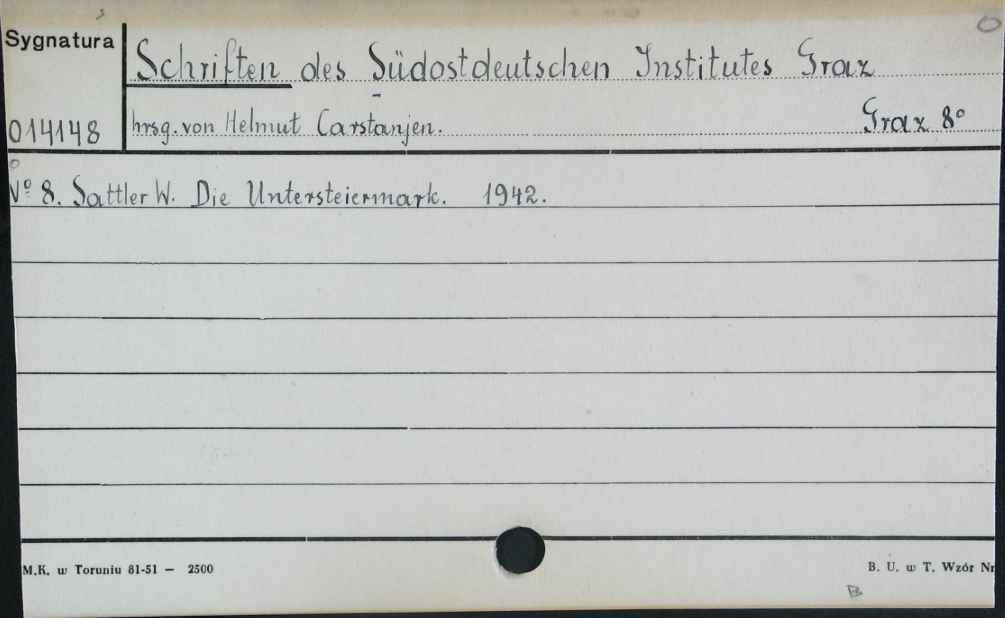 Sygnatura
Schriften des Südostdeutschen Institutes Graz
014148
hrsg. von Helmut Carstanjen. Graz 8°
Nº 8. Sattler W. Die Untersteiermark. 1942.
M.K. w Toruniu 81-51 — 2500
B. U. w T. Wzór Nr